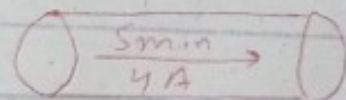 5 min
4 A